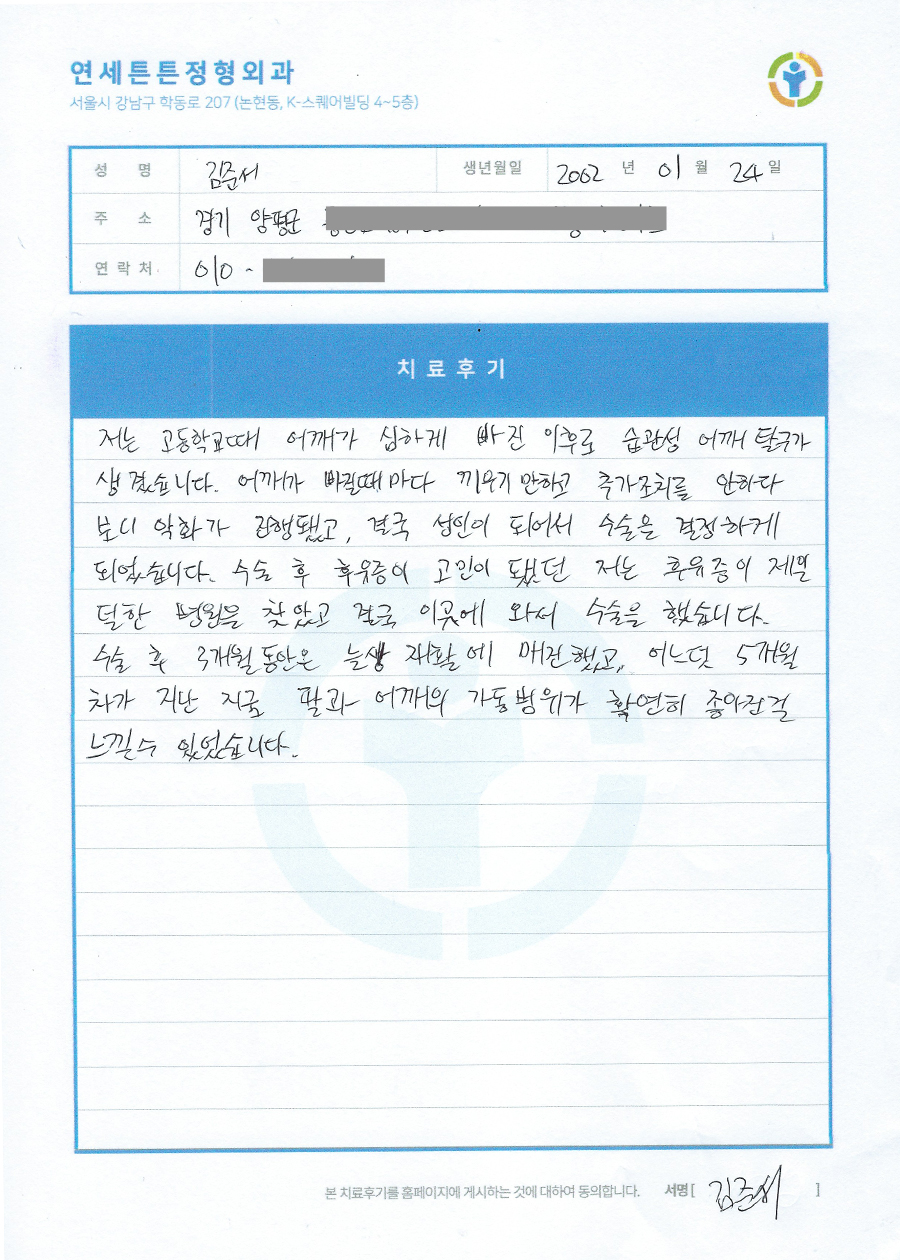 연세튼튼정형외과
서울시 강남구 학동로 207 (논현동, K-스퀘어빌딩 4~5층)
성 명 김준서 생년월일 2002 년 01 월 24 일
주 소 경기 양평군
연락처 010 -
치료후기
저는 고등학교때 어깨가 심하게 빠진 이후로 습관성 어깨 탈구가
생겼습니다. 어깨가 빠질때마다 끼우기 만하고 추가조치를 안하다
보니 악화가 진행됐고, 결국 성인이 되어서 수술을 결정하게
되었습니다. 수술 후 후유증이 고민이 됐던 저는 후유증이 제일
덜한 병원을 찾았고 결국 이곳에 와서 수술을 했습니다.
수술 후 3개월동안은 재활에 매진했고, 어느덧 5개월
차가 지난 지금 팔과 어깨의 가동범위가 확연히 좋아진걸
느낄수 있었습니다.
본 치료후기를 홈페이지에 게시하는 것에 대하여 동의합니다. 서명 [ 김준서 ]